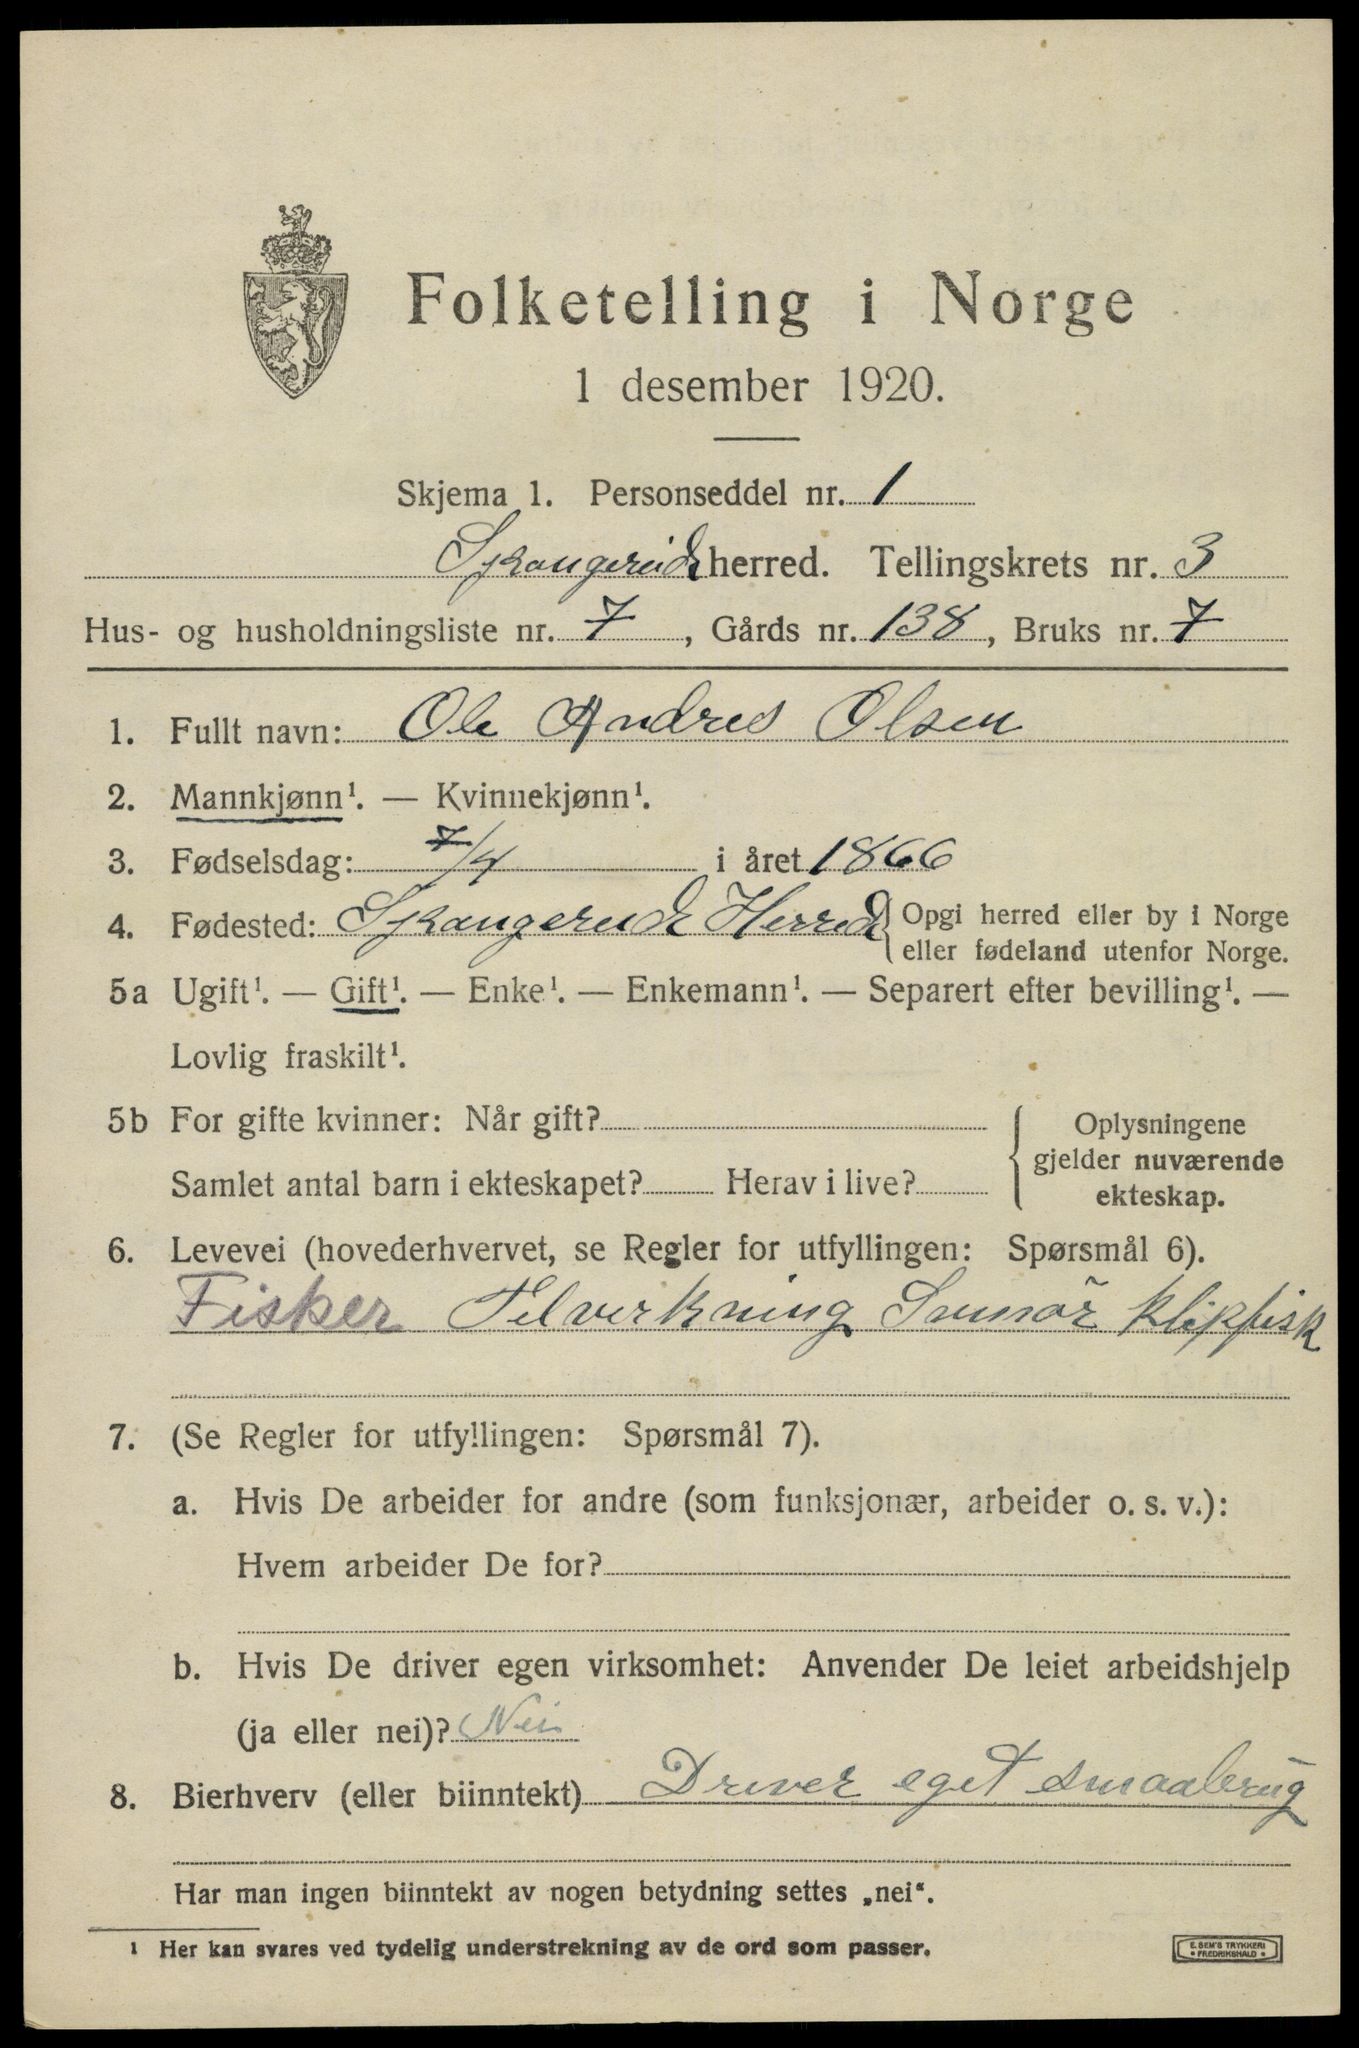 Folketelling i Norge
1 desember 1920.
Skjema 1. Personseddel nr. 1
herred. Tellingskrets nr. 3
Hus- og husholdningsliste nr. 7, Gårds nr. 138, Bruks nr. 7
1. Fullt navn: Ole Andres Olsen
2. Mannkjønn¹. — Kvinnekjønn¹.
3. Fødselsdag: 7/4 i året 1866
4. Fødested: Herred { Opgi herred eller by i Norge
eller fødeland utenfor Norge.
5a Ugift¹. — Gift¹. — Enke¹. — Enkemann¹. — Separert efter bevilling¹. —
Lovlig fraskilt¹.
5b For gifte kvinner: Når gift?
Samlet antal barn i ekteskapet? Herav i live?
Oplysningene
gjelder nuværende
ekteskap.
6. Levevei (hovederhvervet, se Regler for utfyllingen: Spørsmål 6).
Fisker Tilverkning klipfisk
7. (Se Regler for utfyllingen: Spørsmål 7).
a. Hvis De arbeider for andre (som funksjonær, arbeider o. s. v.):
Hvem arbeider De for?
b. Hvis De driver egen virksomhet: Anvender De leiet arbeidshjelp
(ja eller nei)? Nei
8. Bierhverv (eller biinntekt) Driver eget smaabrug
Har man ingen biinntekt av nogen betydning settes „nei“.
¹ Her kan svares ved tydelig understrekning av de ord som passer.
E. SEM'S TRYKKERI
• FREDRIKSHALD •